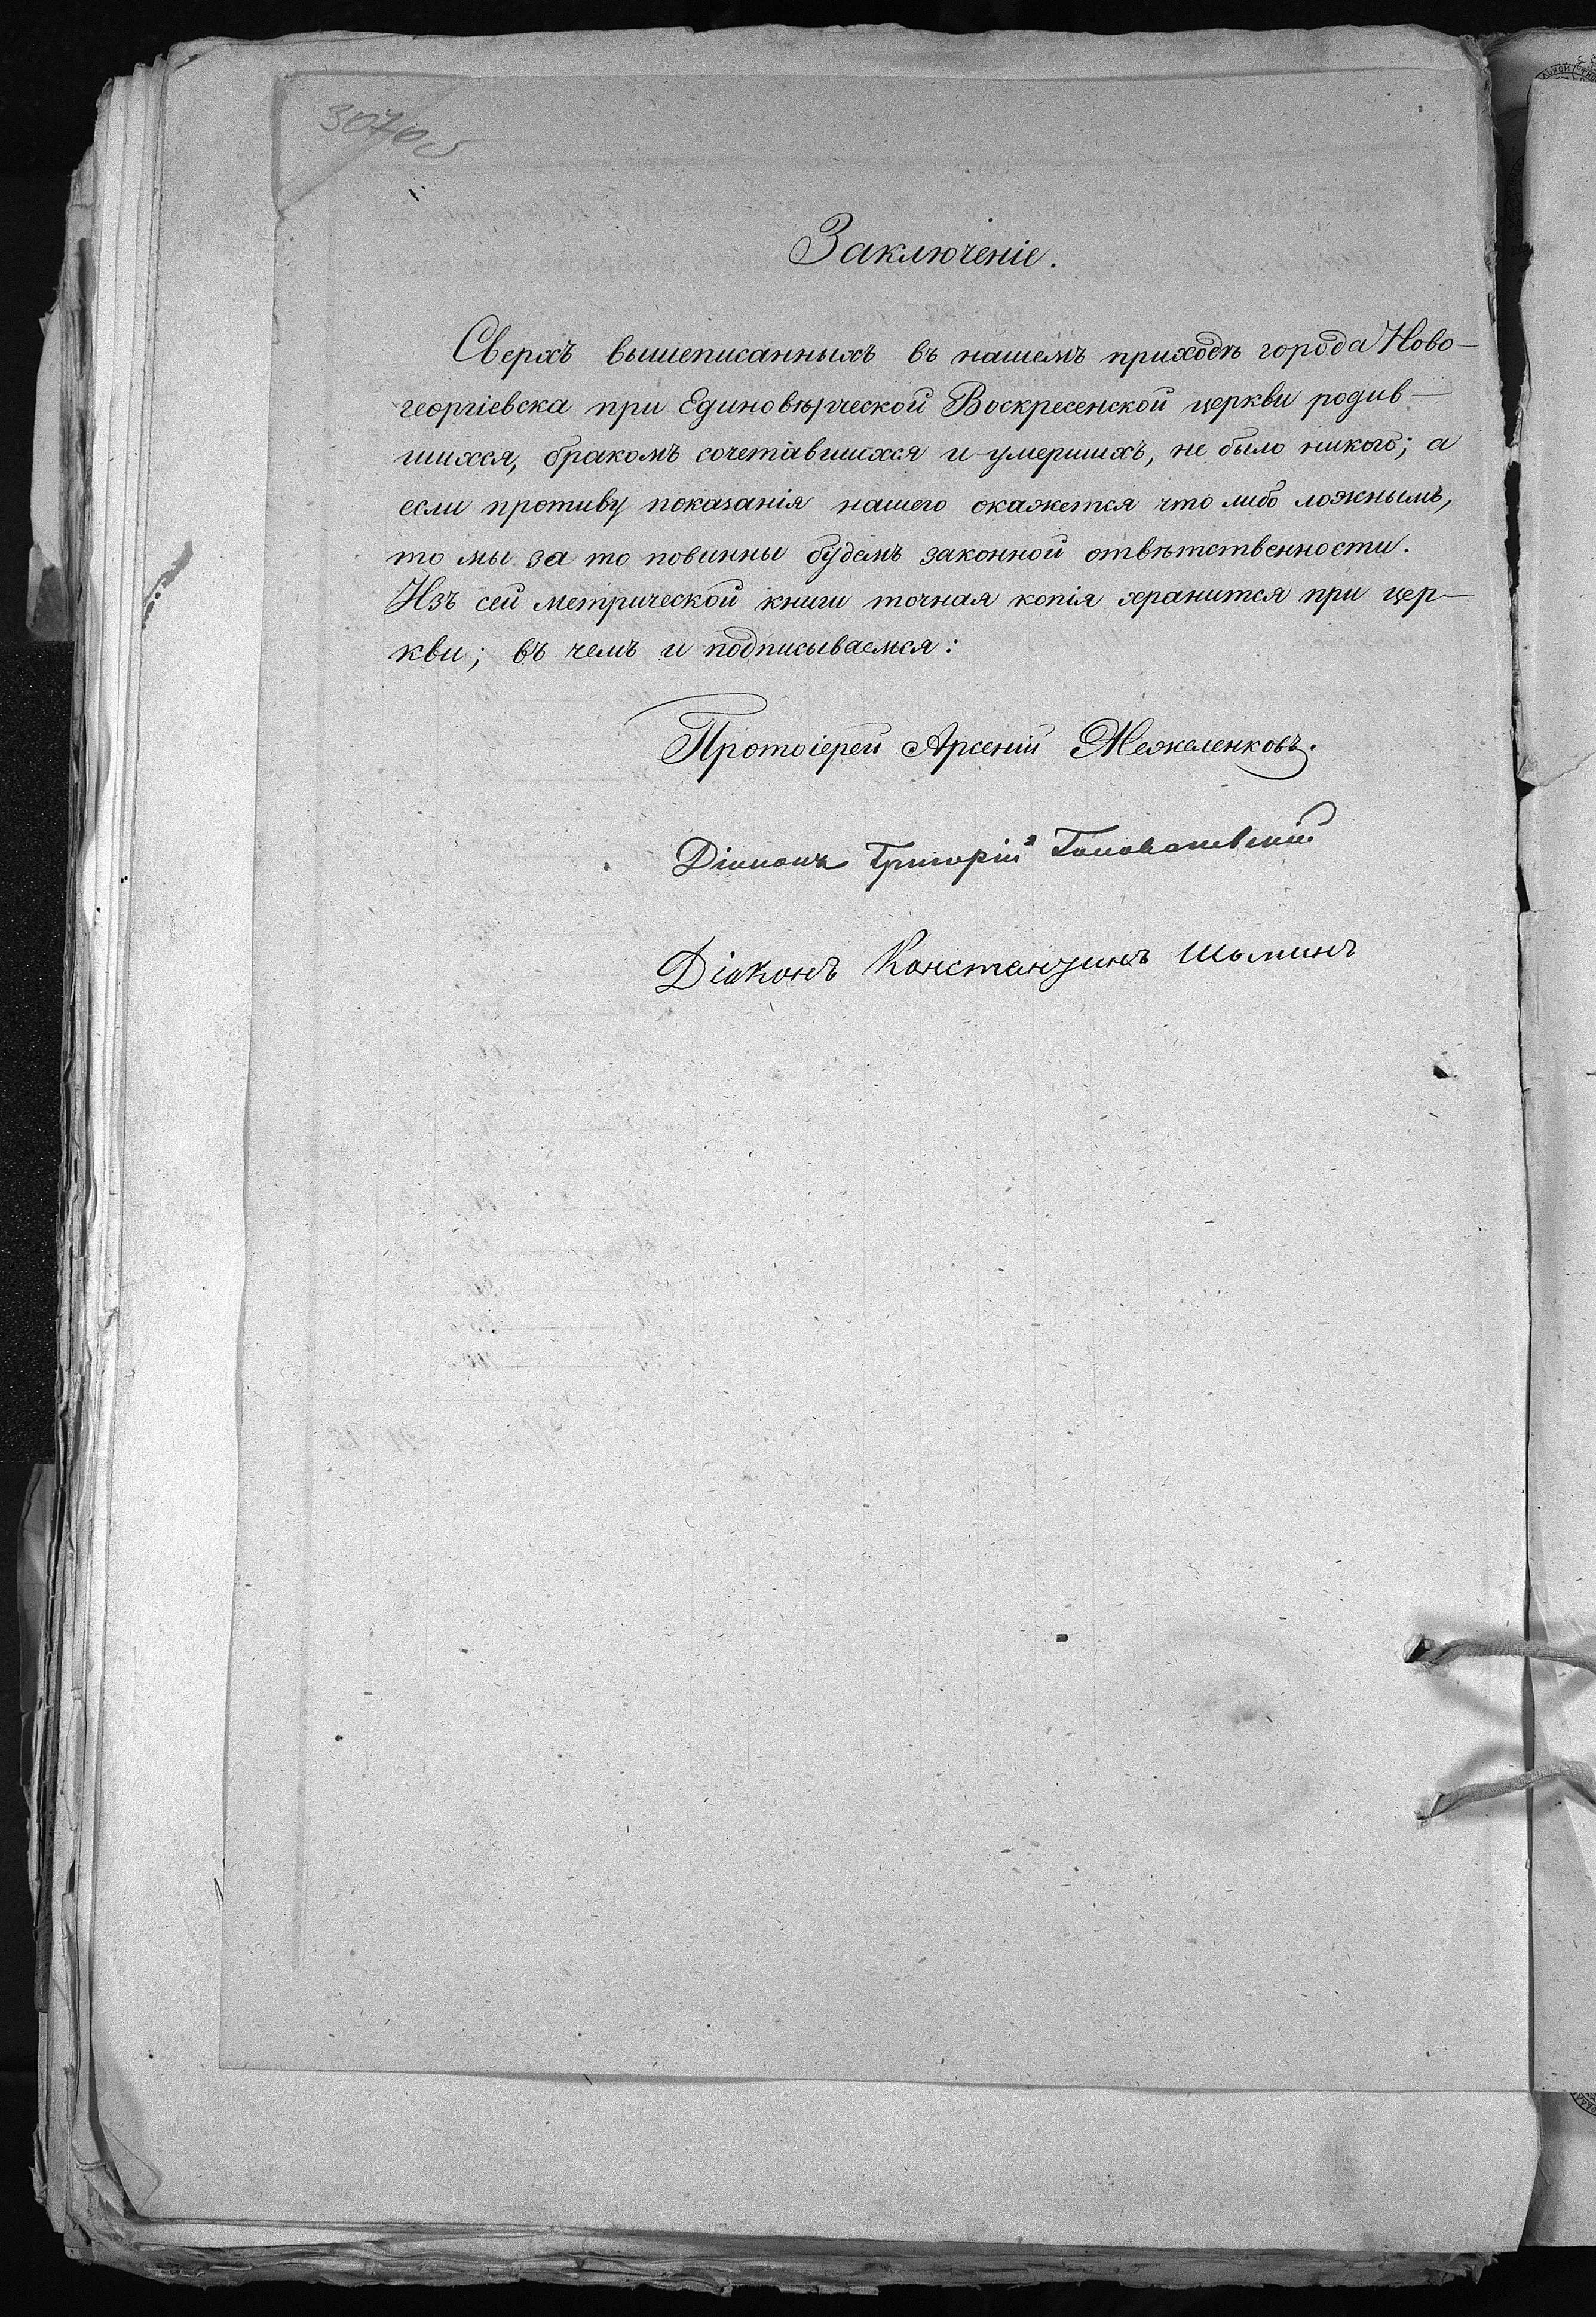 307об
Заключеніе.
Сверхъ вышеписанныхъ въ нашемъ приходѣ города Ново-
георгіевска при Единовѣрческой Воскресенской церкви родив-
шихся, бракомъ сочетавшихся и умершихъ, не было никого; а
если противу показанія нашего окажется что либо ложнымъ,
то мы за то повинны будемъ законной отвѣтственности.
Изъ сей метрической книги точная копія хранится при цер-
кви; въ чемъ и подписываемся:
Протоіерей Арсеній
Діаконъ Григорій
Діаконъ Константинъ